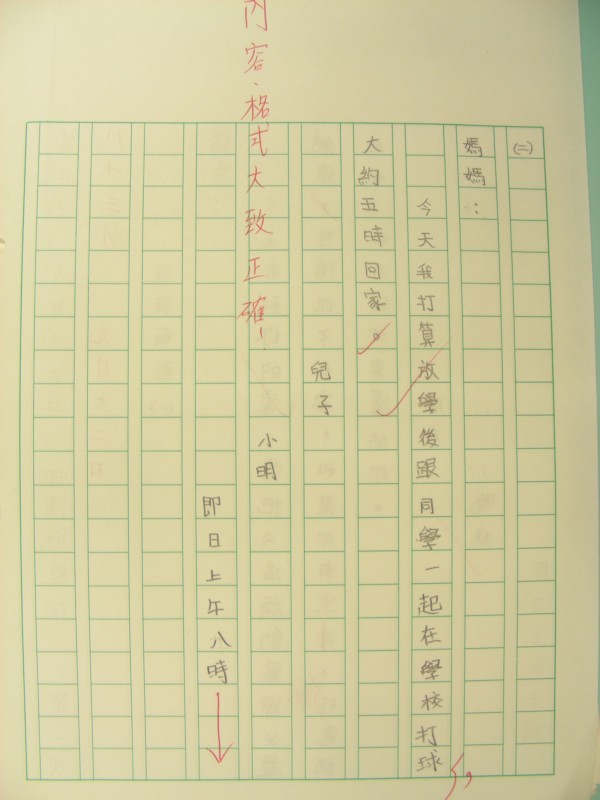 (二)
媽媽：
今天我打算放學後跟同學一起在學校打球，
大約五時回家。
兒子
小明
即日上午八時
內容、格式大致正確！